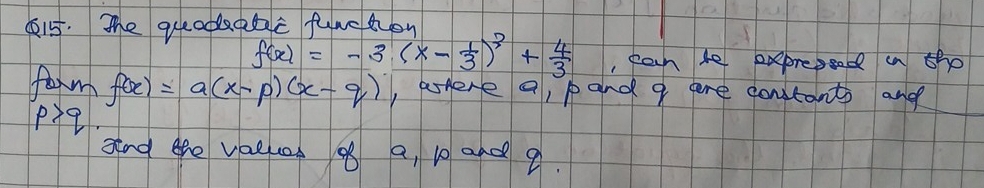 Q15. The quadratic function
f(x) = -3.(x - 1/3)² + 4/3 , can be expressed in the
form f(x) = a(x-p)(x-q), where a, p and q are constants and
p>q.
Find the values of a, p and q.